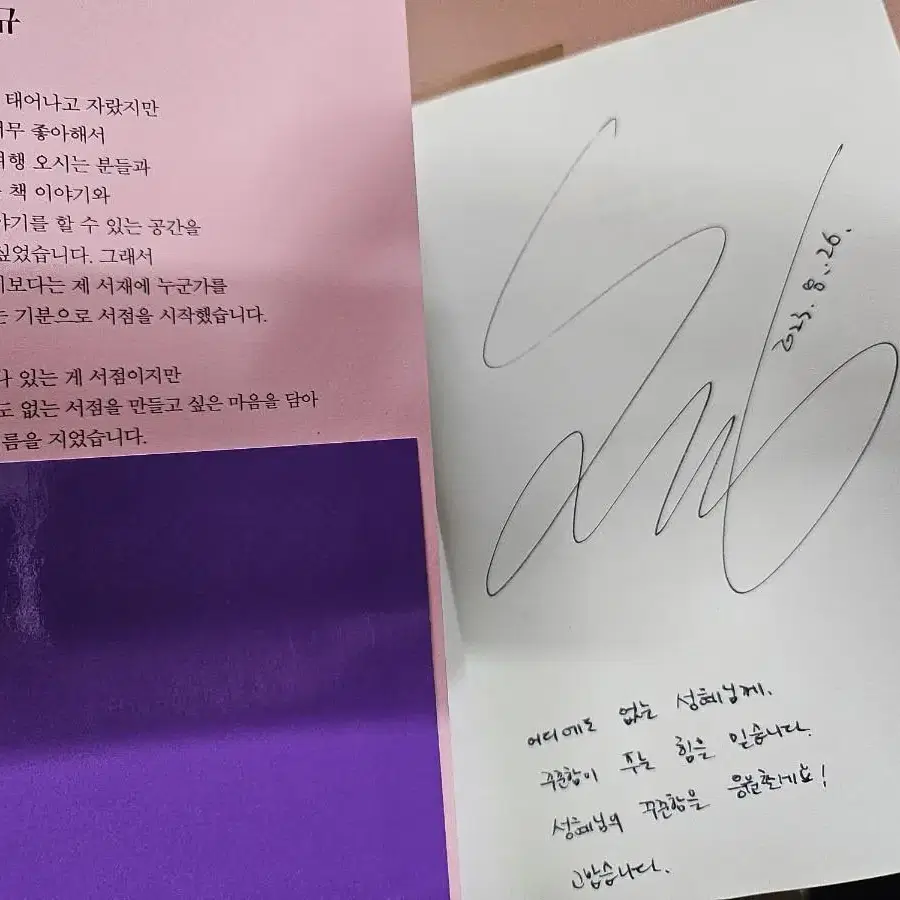 규
태어나고 자랐지만
너무 좋아해서
여행 오시는 분들과
책 이야기와
야기를 할 수 있는 공간을
싶었습니다. 그래서
보다는 제 서재에 누군가를
는 기분으로 서점을 시작했습니다.
나 있는 게 서점이지만
도 없는 서점을 만들고 싶은 마음을 담아
름을 지었습니다.
2023. 8. 26.
어디에도 없는 성혜님께.
꾸준함이 주는 힘을 믿습니다.
성혜님의 꾸준함을 응원할게요!
고맙습니다.